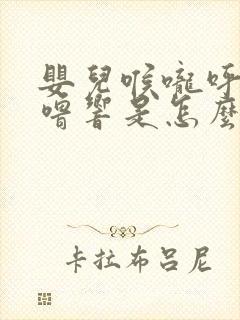 嬰兒喉嚨呼
嚕響是怎麼
卡拉布呂尼